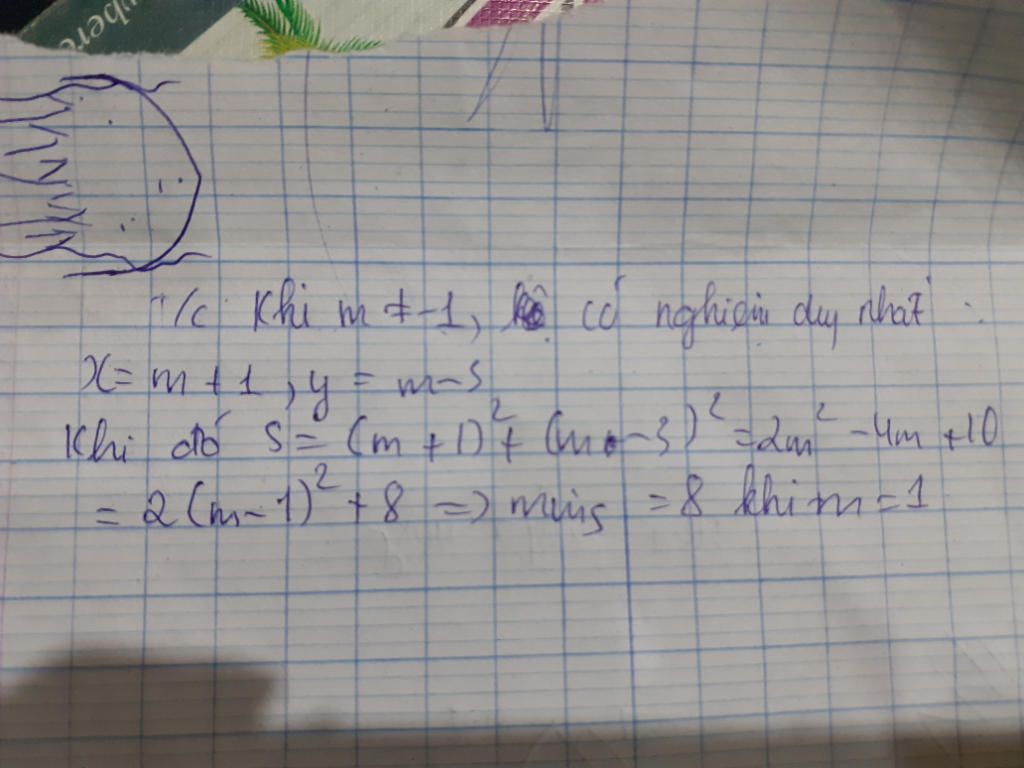 ubere
1/c Khi m ≠ -1, hệ có nghiệm duy nhất :
x = m + 1, y = m - 3
Khi đó S = (m + 1)² + (m - 3)² = 2m² - 4m + 10
= 2(m - 1)² + 8 => minS = 8 khi m = 1